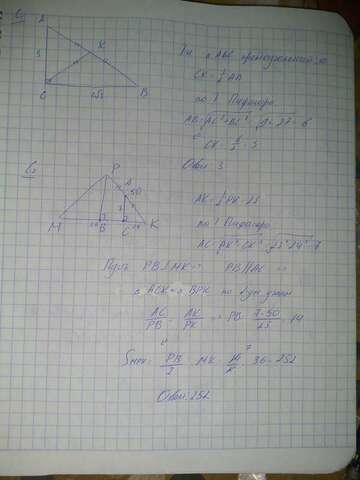 C₁
A
K
3
C
B
Т.к. △ABC прямоугольный, то
CK = ½ AB
по Т. Пифагора
AB = √AC²+BC² = √9+27 = 6
CK = 6/2 = 3
Ответ 3
C₂
P
A
50
7
M
B
C
K
AK = ½ PK = 25
по Т. Пифагора
AC = √AK²-CK² = √25²-24² = 7
PB ⊥ MK ⇒ PB || AC ⇒
△ ACK ~ △ BPK по двум углам
AC/PB = AK/PK ⇒ PB = 7·50/25 = 14
Sмрк = PB/2 · MK = 14/2 · 36 = 252
Ответ: 252